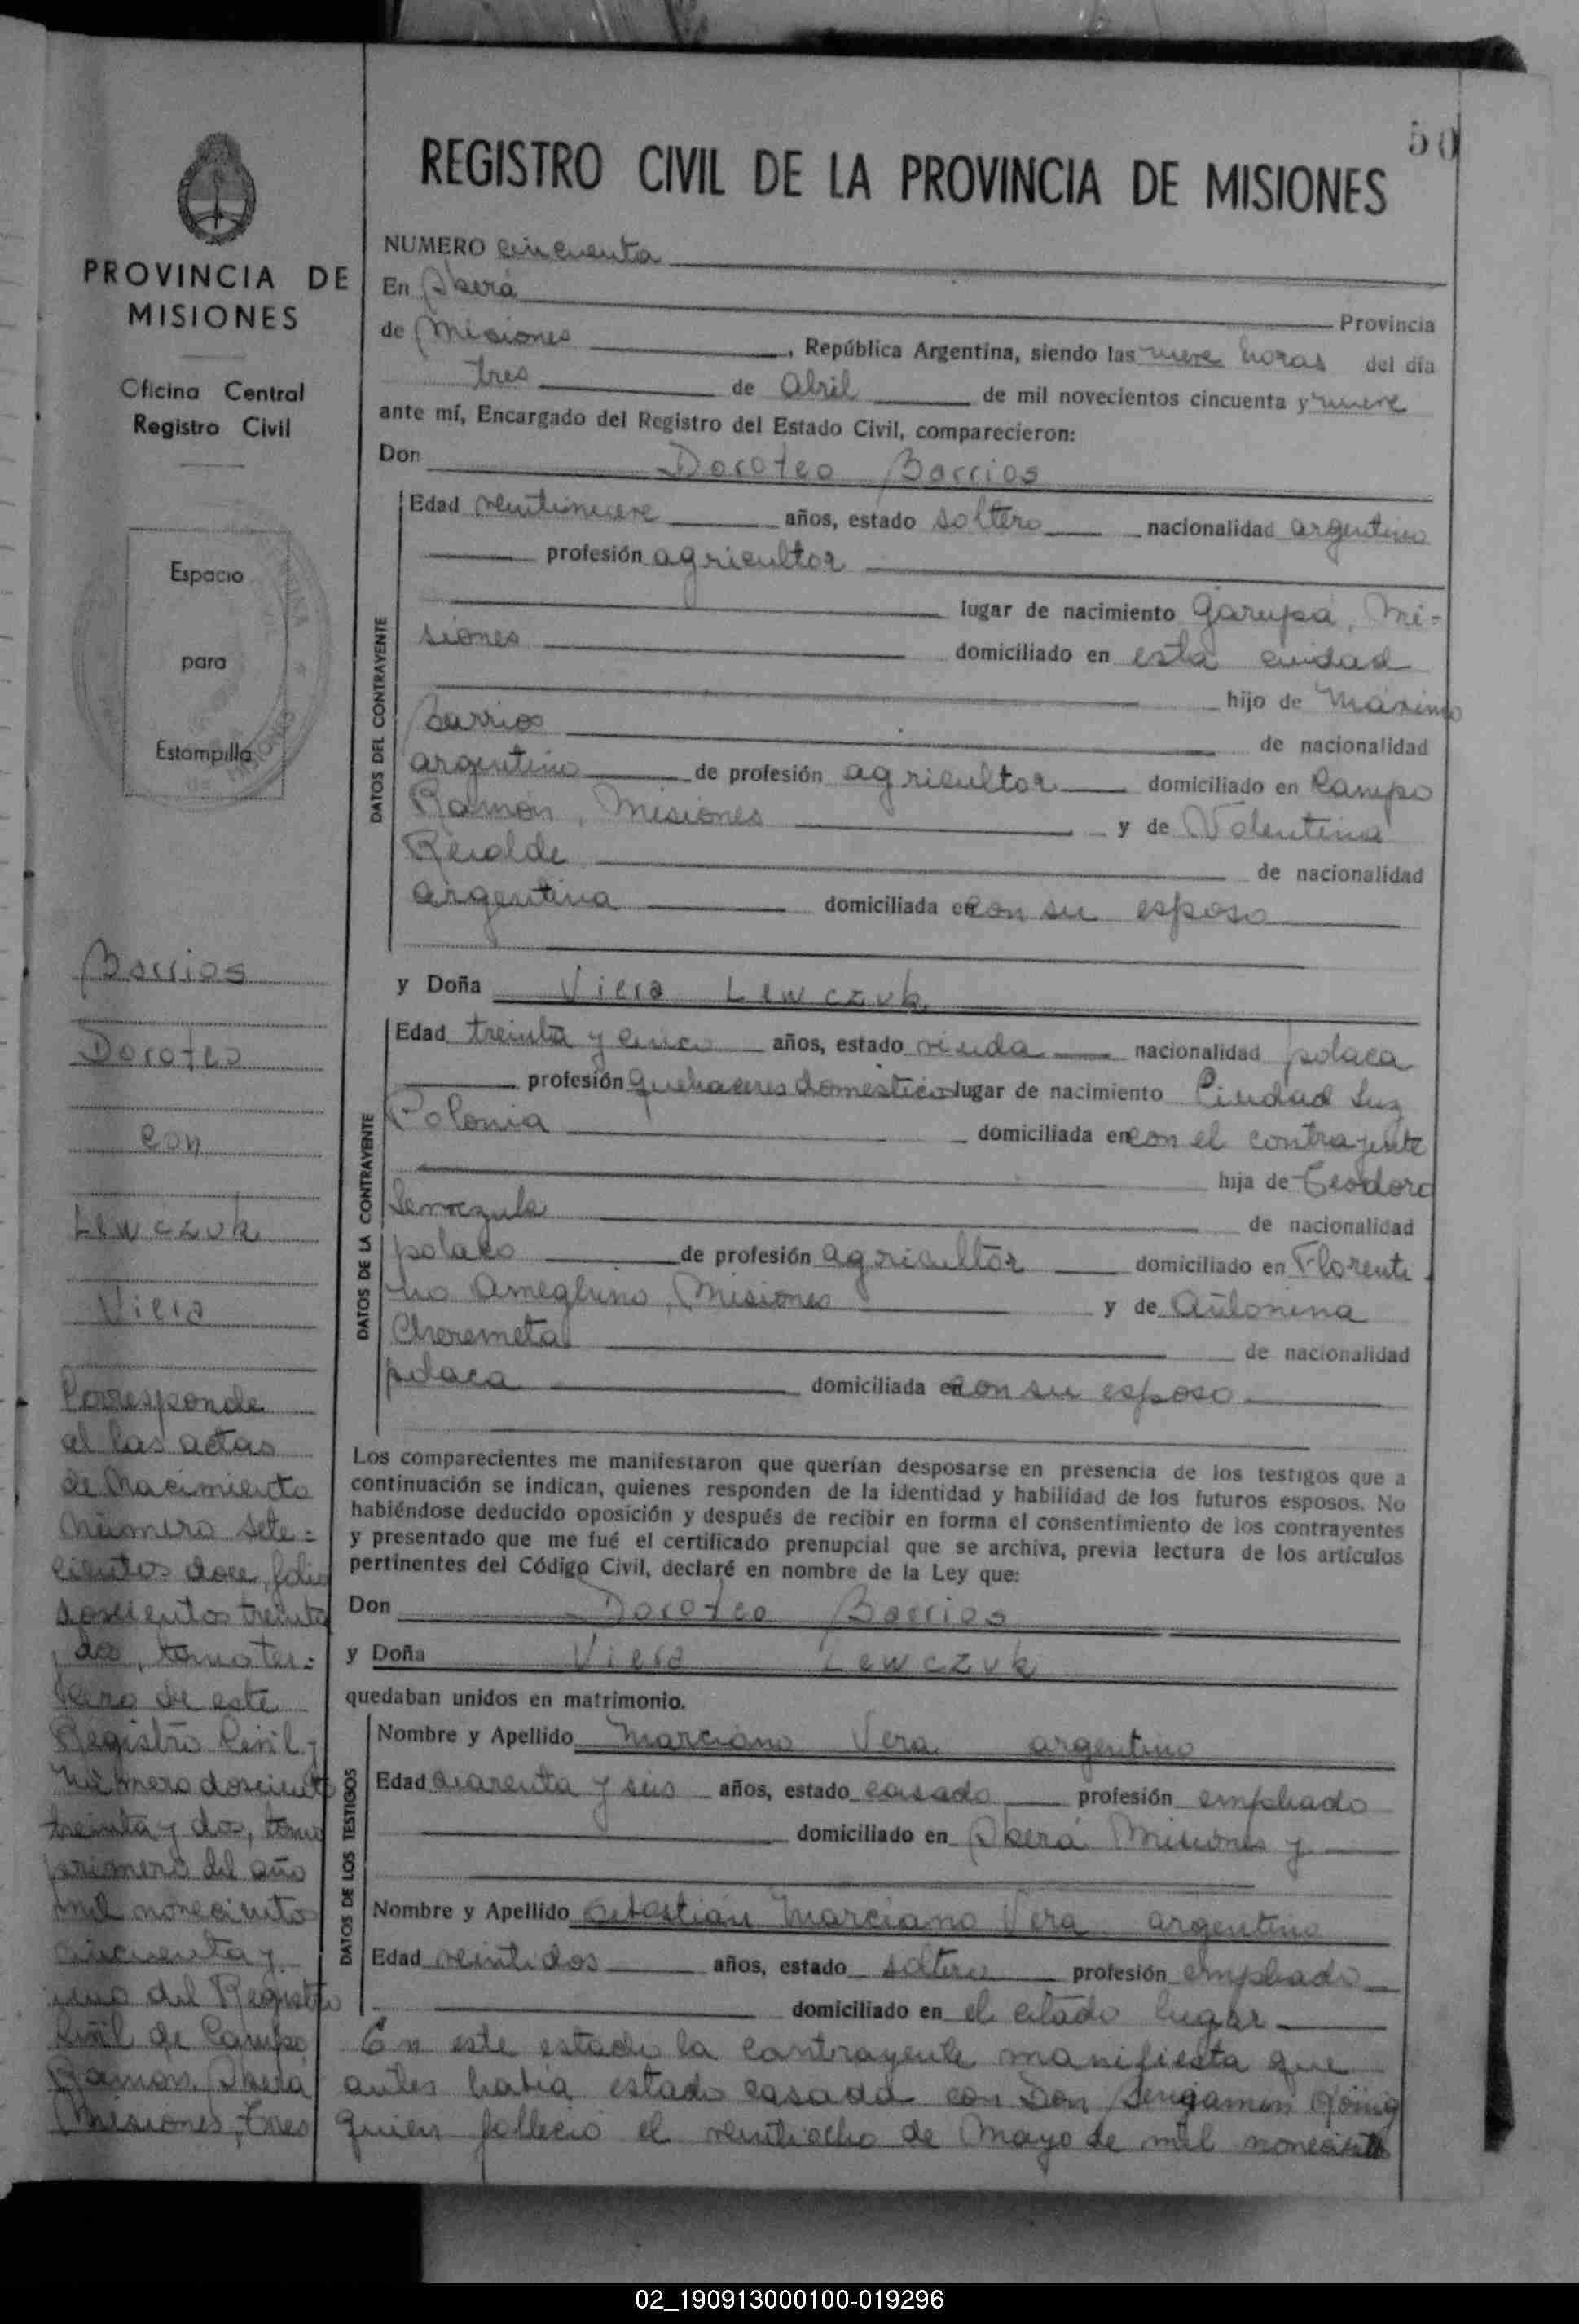 PROVINCIA DE
MISIONES
Oficina Central
Registro Civil
Espacio
para
Estampilla
Barrios
Doroteo
con
Lewczuk
Viera
Corresponde
a las actas
de Nacimiento
número sete=
cientos doce, folio
doscientos treinta
dos, tomo ter=
cero de este
Registro Civil y
número doscientos
treinta y dos, tomo
primero del año
mil novecientos
cincuenta y
uno del Registro
Civil de Campo
Ramón. Oberá
Misiones, tres
50
REGISTRO CIVIL DE LA PROVINCIA DE MISIONES
NUMERO cincuenta
En Oberá Provincia
de Misiones, República Argentina, siendo las nueve horas del día
tres de Abril de mil novecientos cincuenta y nueve
ante mí, Encargado del Registro del Estado Civil, comparecieron:
Don Doroteo Barrios
DATOS DEL CONTRAYENTE
Edad veintinueve años, estado soltero nacionalidad argentino
profesión agricultor
lugar de nacimiento Garupá, Mi-
siones domiciliado en esta ciudad
hijo de Máximo
Barrios de nacionalidad
argentino de profesión agricultor domiciliado en Campo
Ramón, Misiones y de Valentina
de nacionalidad
argentina domiciliada en con su esposo
y Doña Viera Lewczuk
DATOS DE LA CONTRAYENTE
Edad treinta y cinco años, estado viuda nacionalidad polaca
profesión quehaceres domésticos lugar de nacimiento Ciudad Luz
Polonia domiciliada en con el contrayente
hija de Teodoro
Lewczuk de nacionalidad
polaco de profesión agricultor domiciliado en Florenti
no Ameghino, Misiones y de Antonina
Cheremeta de nacionalidad
polaca domiciliada en con su esposo
Los comparecientes me manifestaron que querían desposarse en presencia de los testigos que a
continuación se indican, quienes responden de la identidad y habilidad de los futuros esposos. No
habiéndose deducido oposición y después de recibir en forma el consentimiento de los contrayentes
y presentado que me fué el certificado prenupcial que se archiva, previa lectura de los artículos
pertinentes del Código Civil, declaré en nombre de la Ley que:
Don Doroteo Barrios
y Doña Viera Lewczuk
quedaban unidos en matrimonio.
DATOS DE LOS TESTIGOS
Nombre y Apellido Marciano Vera argentino
Edad cuarenta y seis años, estado casado profesión empleado
domiciliado en Oberá Misiones y
Nombre y Apellido Sebastián Marciano Vera argentino
Edad veintidos años, estado soltero profesión empleado
domiciliado en el citado lugar
En este estado la contrayente manifiesta que
antes había estado casada con Don Benjamín König
quien falleció el veintiocho de Mayo de mil novecientos
02_190913000100-019296